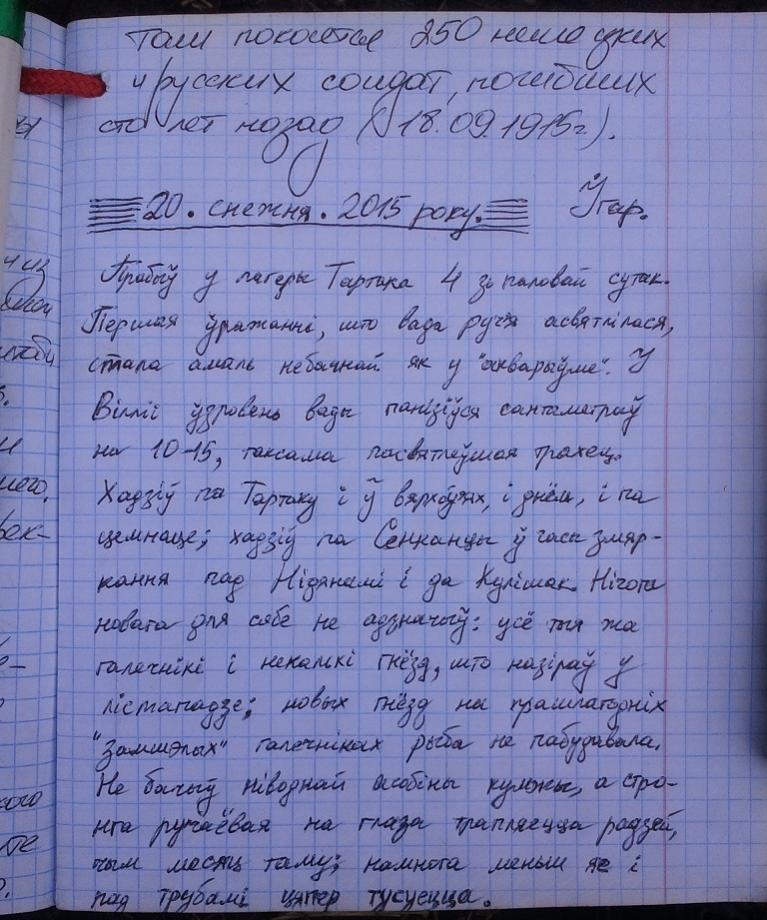 там покоется 250 немецких
и русских солдат, погибших
сто лет назад (18.09.1915г.).
20. снежня. 2015 року. Ўгар.
Прабыў у лагеры Тартака 4 з паловай сутак.
Першая ўражанні, што вада ручʼя асвятлілася,
стала амаль небачнай як у "акварыўме". У
Віліі ўзровень вады панізіўся сантаметраў
на 10-15, таксама пасвятлеўшая трохец.
Хадзіў па Тартаку і ў вярхоўях, і днём, і па
цемнаце; хадзіў па Сенканцы ў часы змяр-
кання над Нідянамі і да Кулішак. Нічога
новага для сябе не адзначыў: усё тыя жа
галечнікі і некалькі гнёзд, што назіраў у
лістападзе; новых гнёзд на прашлагодніх
"замшэлых" галечніках рыба не пабудавала.
Не бачыў ніводнай асобіны кумжы, а стро-
нга ручаёвая на глаза трапляецца радзей,
чым месяц таму; намнога меньш яе і
пад трубамі цяпер тусуецца.